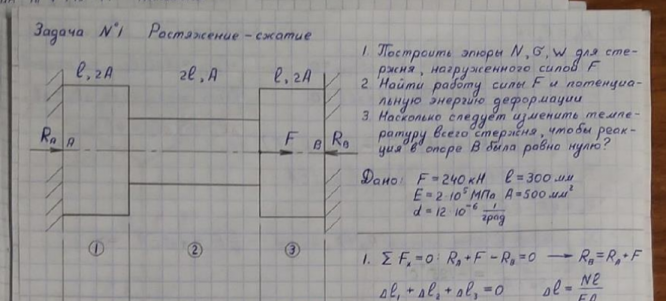 Задача №1 Растяжение-сжатие
l, 2A
2l, A
l, 2A
R_A
A
F
B
R_B
①
②
③
1. Построить эпюры N, σ, w для сте-
ржня, нагруженного силой F
2 Найти работу силы F и потенциа-
льную энергию деформации
3. Насколько следует изменить темпе-
ратуру всего стержня, чтобы реак-
ция в опоре B была равно нулю?
Дано: F = 240 кН l = 300 мм
E = 2·10⁵ МПа A = 500 мм²
α = 12·10⁻⁶ 1/град
1. ΣFₓ=0: R_A + F − R_B = 0 → R_B = R_A + F
Δl₁ + Δl₂ + Δl₃ = 0 Δl = Nl